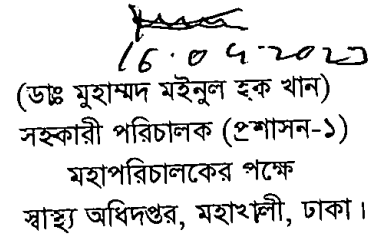 (ডাঃ মুহাম্মদ মইনুল হক খান)
সহকারী পরিচালক (প্রশাসন-১)
মহাপরিচালকের পক্ষে
স্বাস্থ্য অধিদপ্তর, মহাখালী, ঢাকা।